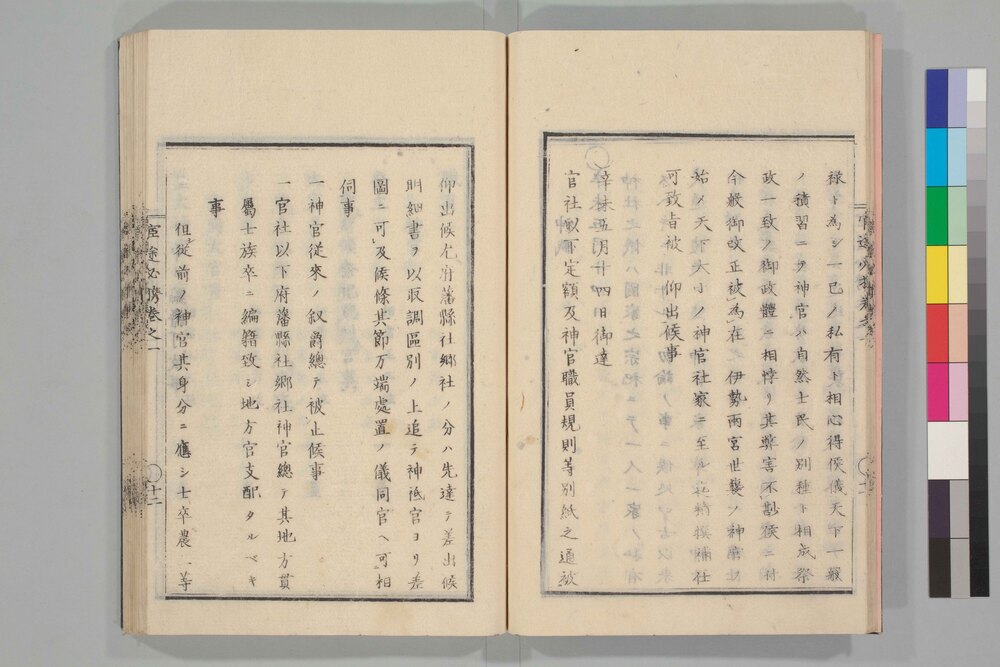 祿ト為シ一己ノ私有ト相心得候儀天下一般
ノ積習ニテ神官ハ自然士民ノ別種ト相成祭
政一致ノ御政體ニ相悖リ其弊害不尠候ニ付
今般御改正被為在伊勢兩宮世襲ノ神官
始メ天下大小ノ神官社家ニ至ル迄精撰補
可致旨被仰出候事
辛未五月十四日御達
官社以下定額及神官職員規則等別紙之通被
仰出候尤府藩縣社郷社ノ分ハ先達テ差出候
明細書ヲ以取調區別ノ上追テ神祇官ヨリ差
圖ニ可及候條其節万端處置ノ儀同官ヘ可相
伺事
一神官從來ノ叙爵總テ被止候事
一官社以下府藩縣社郷社神官總テ其地方貫
屬士族卒ニ編籍致シ地方官支配タルベキ
事
但從前ノ神官其身分ニ應シ士卒農ノ等
必携卷之一
十二